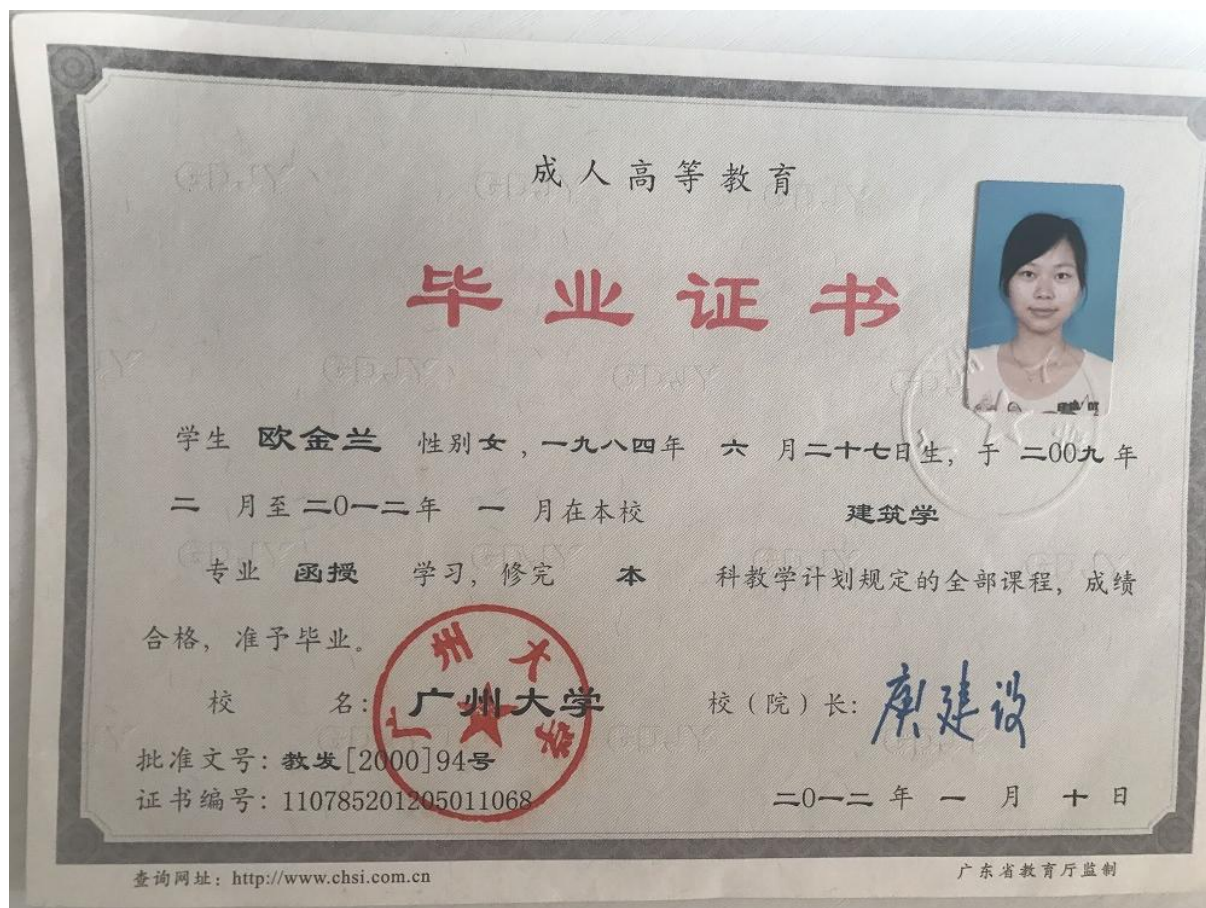 成人高等教育
毕业证书
学生 欧金兰 性别女，一九八四年 六 月二十七日生，于 二00九 年
二 月至 二0一二年 一 月在本校 建筑学
专业 函授 学习，修完 本 科教学计划规定的全部课程，成绩
合格，准予毕业。
校 名：广州大学 校（院）长：庾建设
批准文号：教发[2000]94号
证书编号：110785201205011068 二0一二 年 一 月 十 日
查询网址：http://www.chsi.com.cn 广东省教育厅监制
广州大学